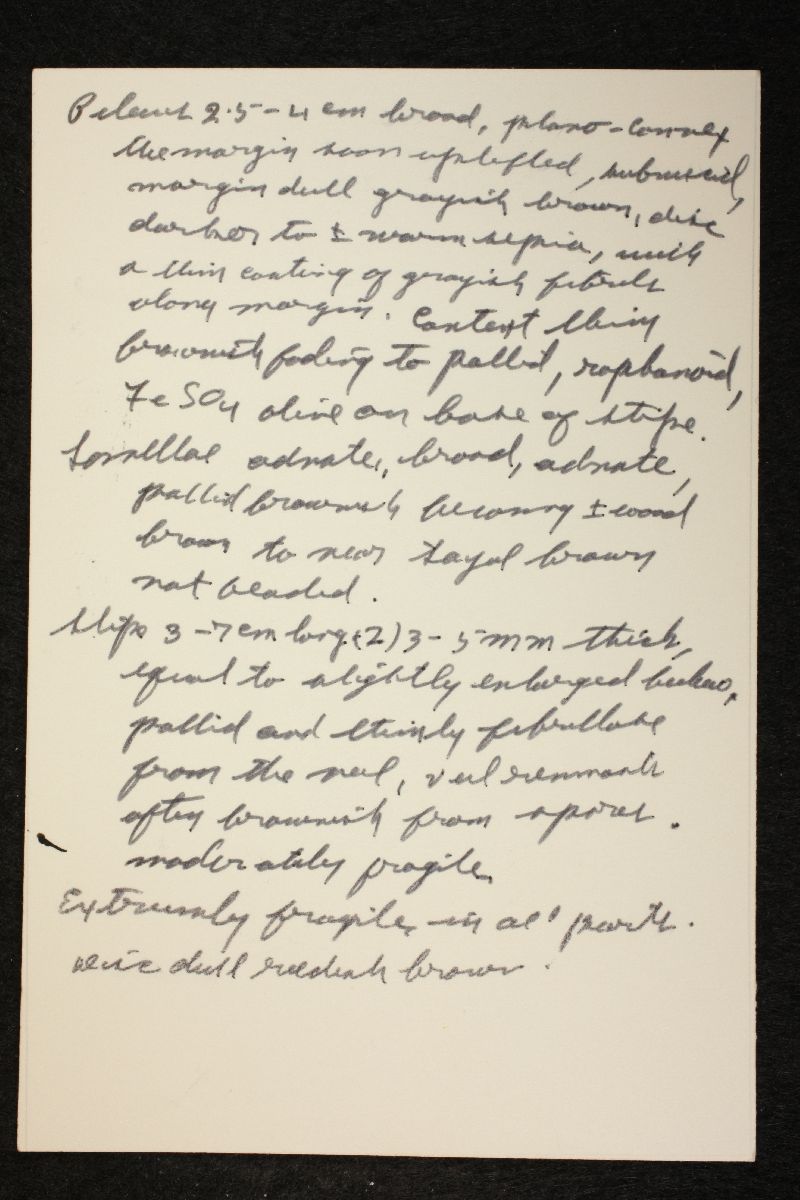 Pileus 2.5-4 cm broad, plano-convex
the margin soon uplifted, subviscid,
margin dull grayish brown, disc
darker to ± warm sepia, with
a thin coating of grayish fibrils
along margin. Context thin
brownish fading to pallid, raphanoid,
FeSO4 olive on base of stipe.
Lamellae adnate, broad, adnate,
pallid brownish becoming ± wood
brown to near Sayal brown
not beaded.
Stipe 3-7 cm long (2) 3-5 mm thick,
equal to slightly enlarged below,
pallid and thinly fibrillose
from the veil, veil remnants
often brownish from spores.
moderately fragile.
Extremely fragile in all parts.
disc dull reddish brown.